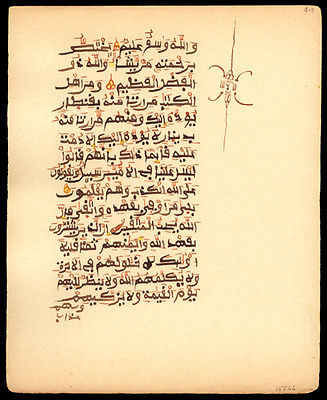 والله وسع عليم يختص
برحمته من يشاء والله ذو
الفضل العظيم ومن اهل
الكتب من ان تامنه بقنطار
يوده اليك ومنهم من ان تامنه
بدينار لا يوده اليك الا ما دمت
عليه قايما ذلك بانهم قالوا
ليس علينا في الامين سبيل ويقولون
على الله الكذب وهم يعلمون
بلى من اوفى بعهده واتقى فان
الله يحب المتقين ان الذين يشترون
بعهد الله وايمنهم ثمنا قليلا
اوليك لا خلق لهم في الاخرة
ولا يكلمهم الله ولا ينظر اليهم
يوم القيمة ولا يزكيهم
ولهم
عذاب